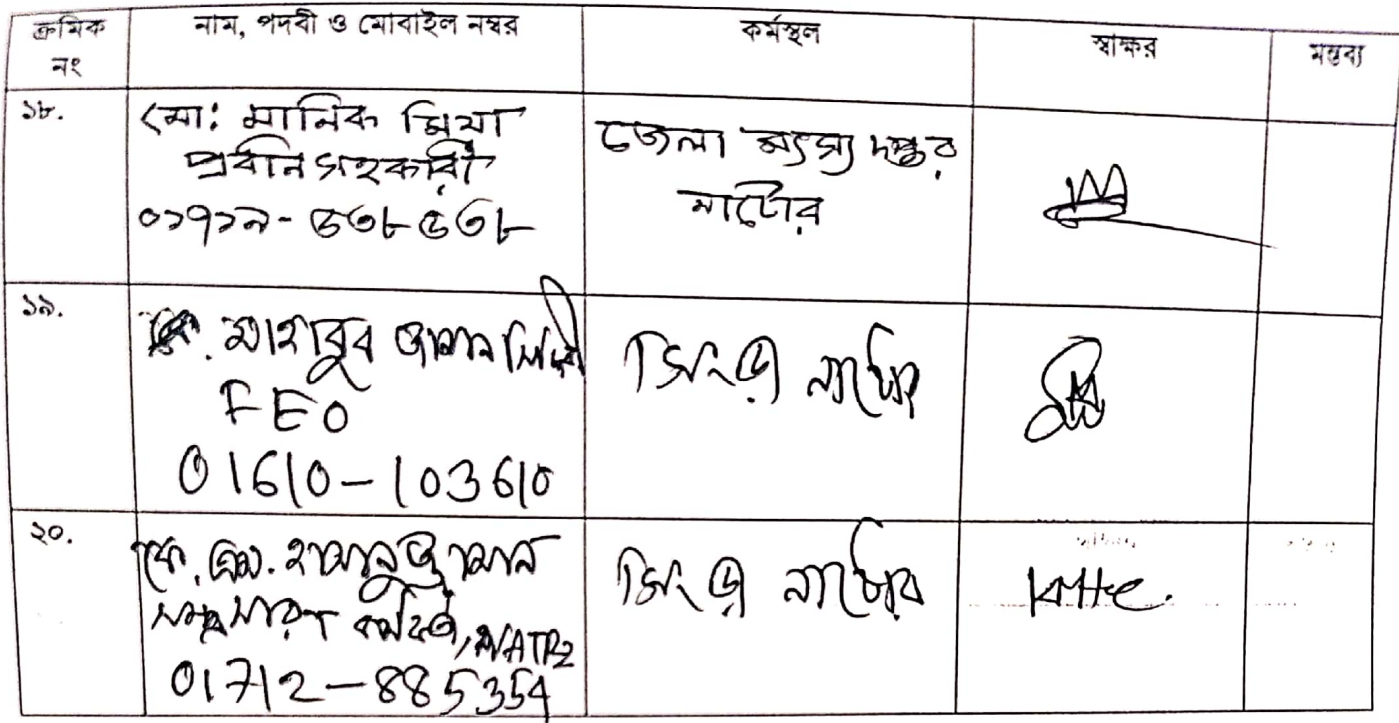 ক্রমিক নং
নাম, পদবী ও মোবাইল নম্বর
কর্মস্থল
স্বাক্ষর
মন্তব্য
১৮.
মো: মানিক মিয়া
প্রধান সহকারী
০১৭১৯-৫৩৮৫৩৮
জেলা মৎস্য দপ্তর
নাটোর
১৯.
মাহাবুব জামান
FEO
01610-103610
সিংড়া নাটোর
২০.
কে, এম.
সম্প্রসারণ কর্মকর্তা, NATP2
01712-885354
সিংড়া নাটোর